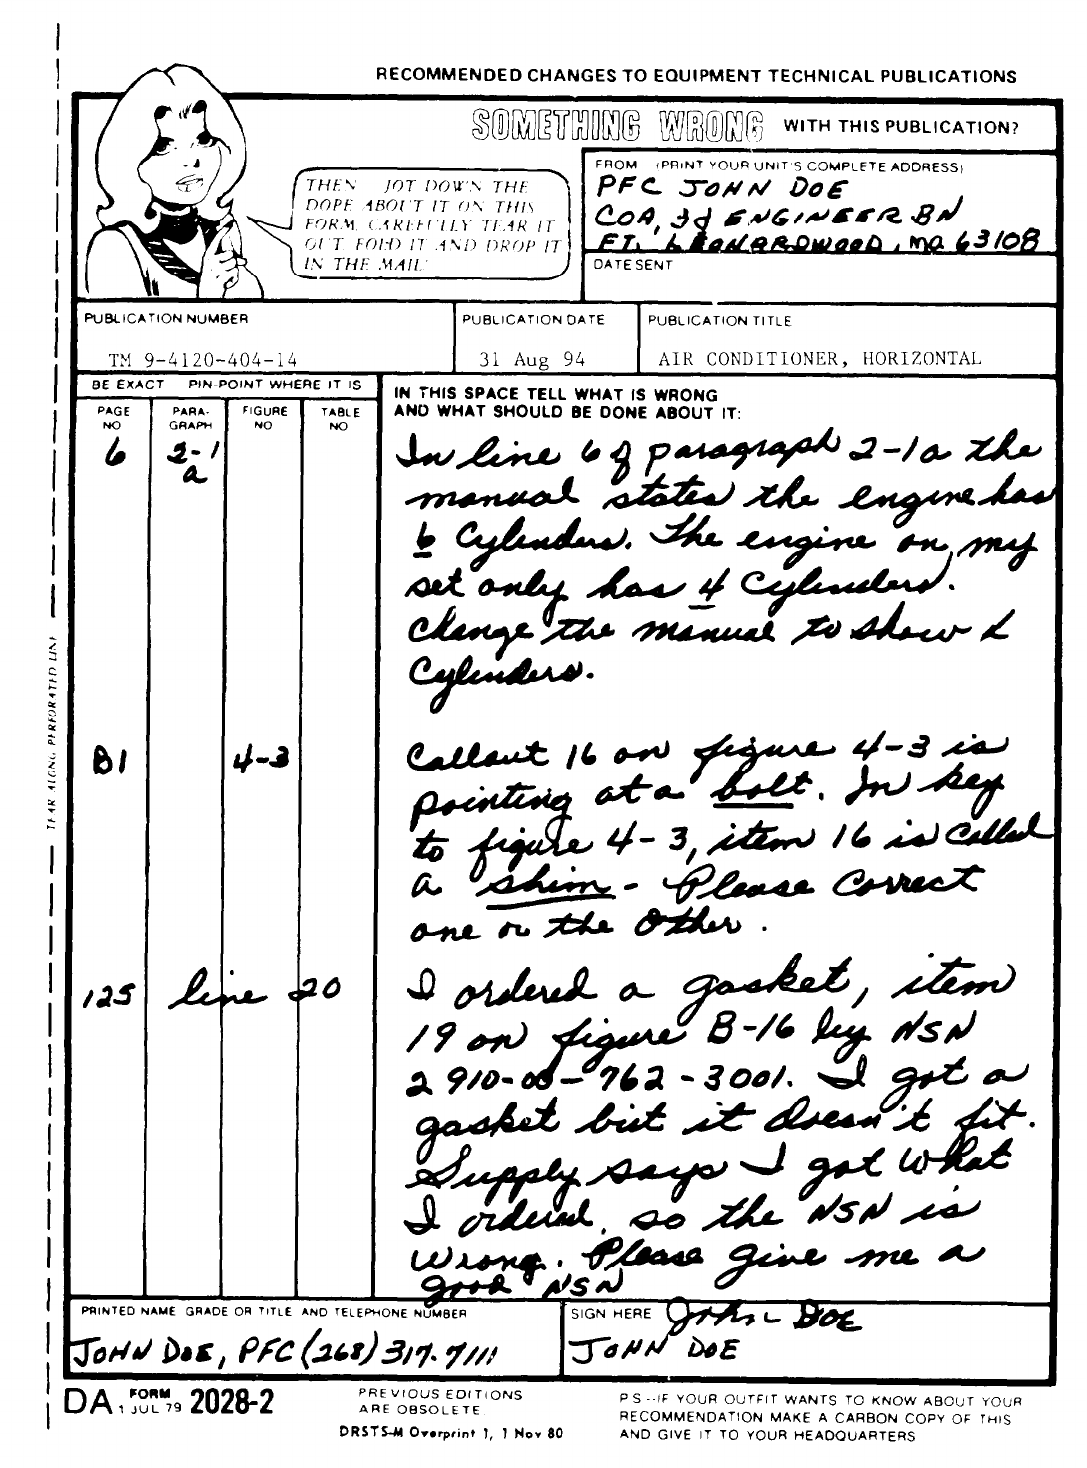 RECOMMENDED CHANGES TO EQUIPMENT TECHNICAL PUBLICATIONS
SOMETHING WRONG WITH THIS PUBLICATION?
THEN JOT DOWN THE
DOPE ABOUT IT ON THIS
FORM, CAREFULLY TEAR IT
OUT FOLD IT AND DROP IT
IN THE MAIL
FROM (PRINT YOUR UNIT'S COMPLETE ADDRESS)
PFC JOHN DOE
COA, 3d ENGINEER BN
FT. LEONARDWOOD, MO 63108
DATE SENT
PUBLICATION NUMBER
TM 9-4120-404-14
PUBLICATION DATE
31 Aug 94
PUBLICATION TITLE
AIR CONDITIONER, HORIZONTAL
BE EXACT PIN-POINT WHERE IT IS
PAGE NO
PARA-GRAPH
FIGURE NO
TABLE NO
IN THIS SPACE TELL WHAT IS WRONG
AND WHAT SHOULD BE DONE ABOUT IT:
6 2-1 a
In line 6 of paragraph 2-1a the
manual states the engine has
6 Cylinders. The engine on my
set only has 4 Cylinders.
Change the manual to show
Cylinders.
B1 4-3
Callout 16 on figure 4-3 is
pointing at a bolt. In key
to figure 4-3, item 16 is called
a shim - Please Correct
one or the other.
125 line 20
I ordered a gasket, item
19 on figure B-16 by NSN
2910-05-762-3001. I got a
gasket but it doesn't fit.
Supply says I got what
I ordered, so the NSN is
wrong. Please give me a
good NSN
PRINTED NAME GRADE OR TITLE AND TELEPHONE NUMBER
JOHN DOE, PFC (268) 317-7111
SIGN HERE John DOE
JOHN DOE
TEAR ALONG PERFORATED LINE
DA FORM 1 JUL 79 2028-2
PREVIOUS EDITIONS
ARE OBSOLETE.
DRSTS-M Overprint 1, 1 Nov 80
PS--IF YOUR OUTFIT WANTS TO KNOW ABOUT YOUR
RECOMMENDATION MAKE A CARBON COPY OF THIS
AND GIVE IT TO YOUR HEADQUARTERS